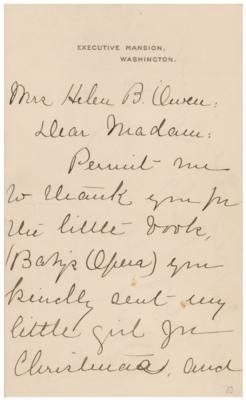 EXECUTIVE MANSION,
WASHINGTON.
Mrs Helen B. Owen:
Dear Madam:
Permit me
to thank you for
the little book,
(Baby's Opera) you
kindly sent my
little girl for
Christmas, and